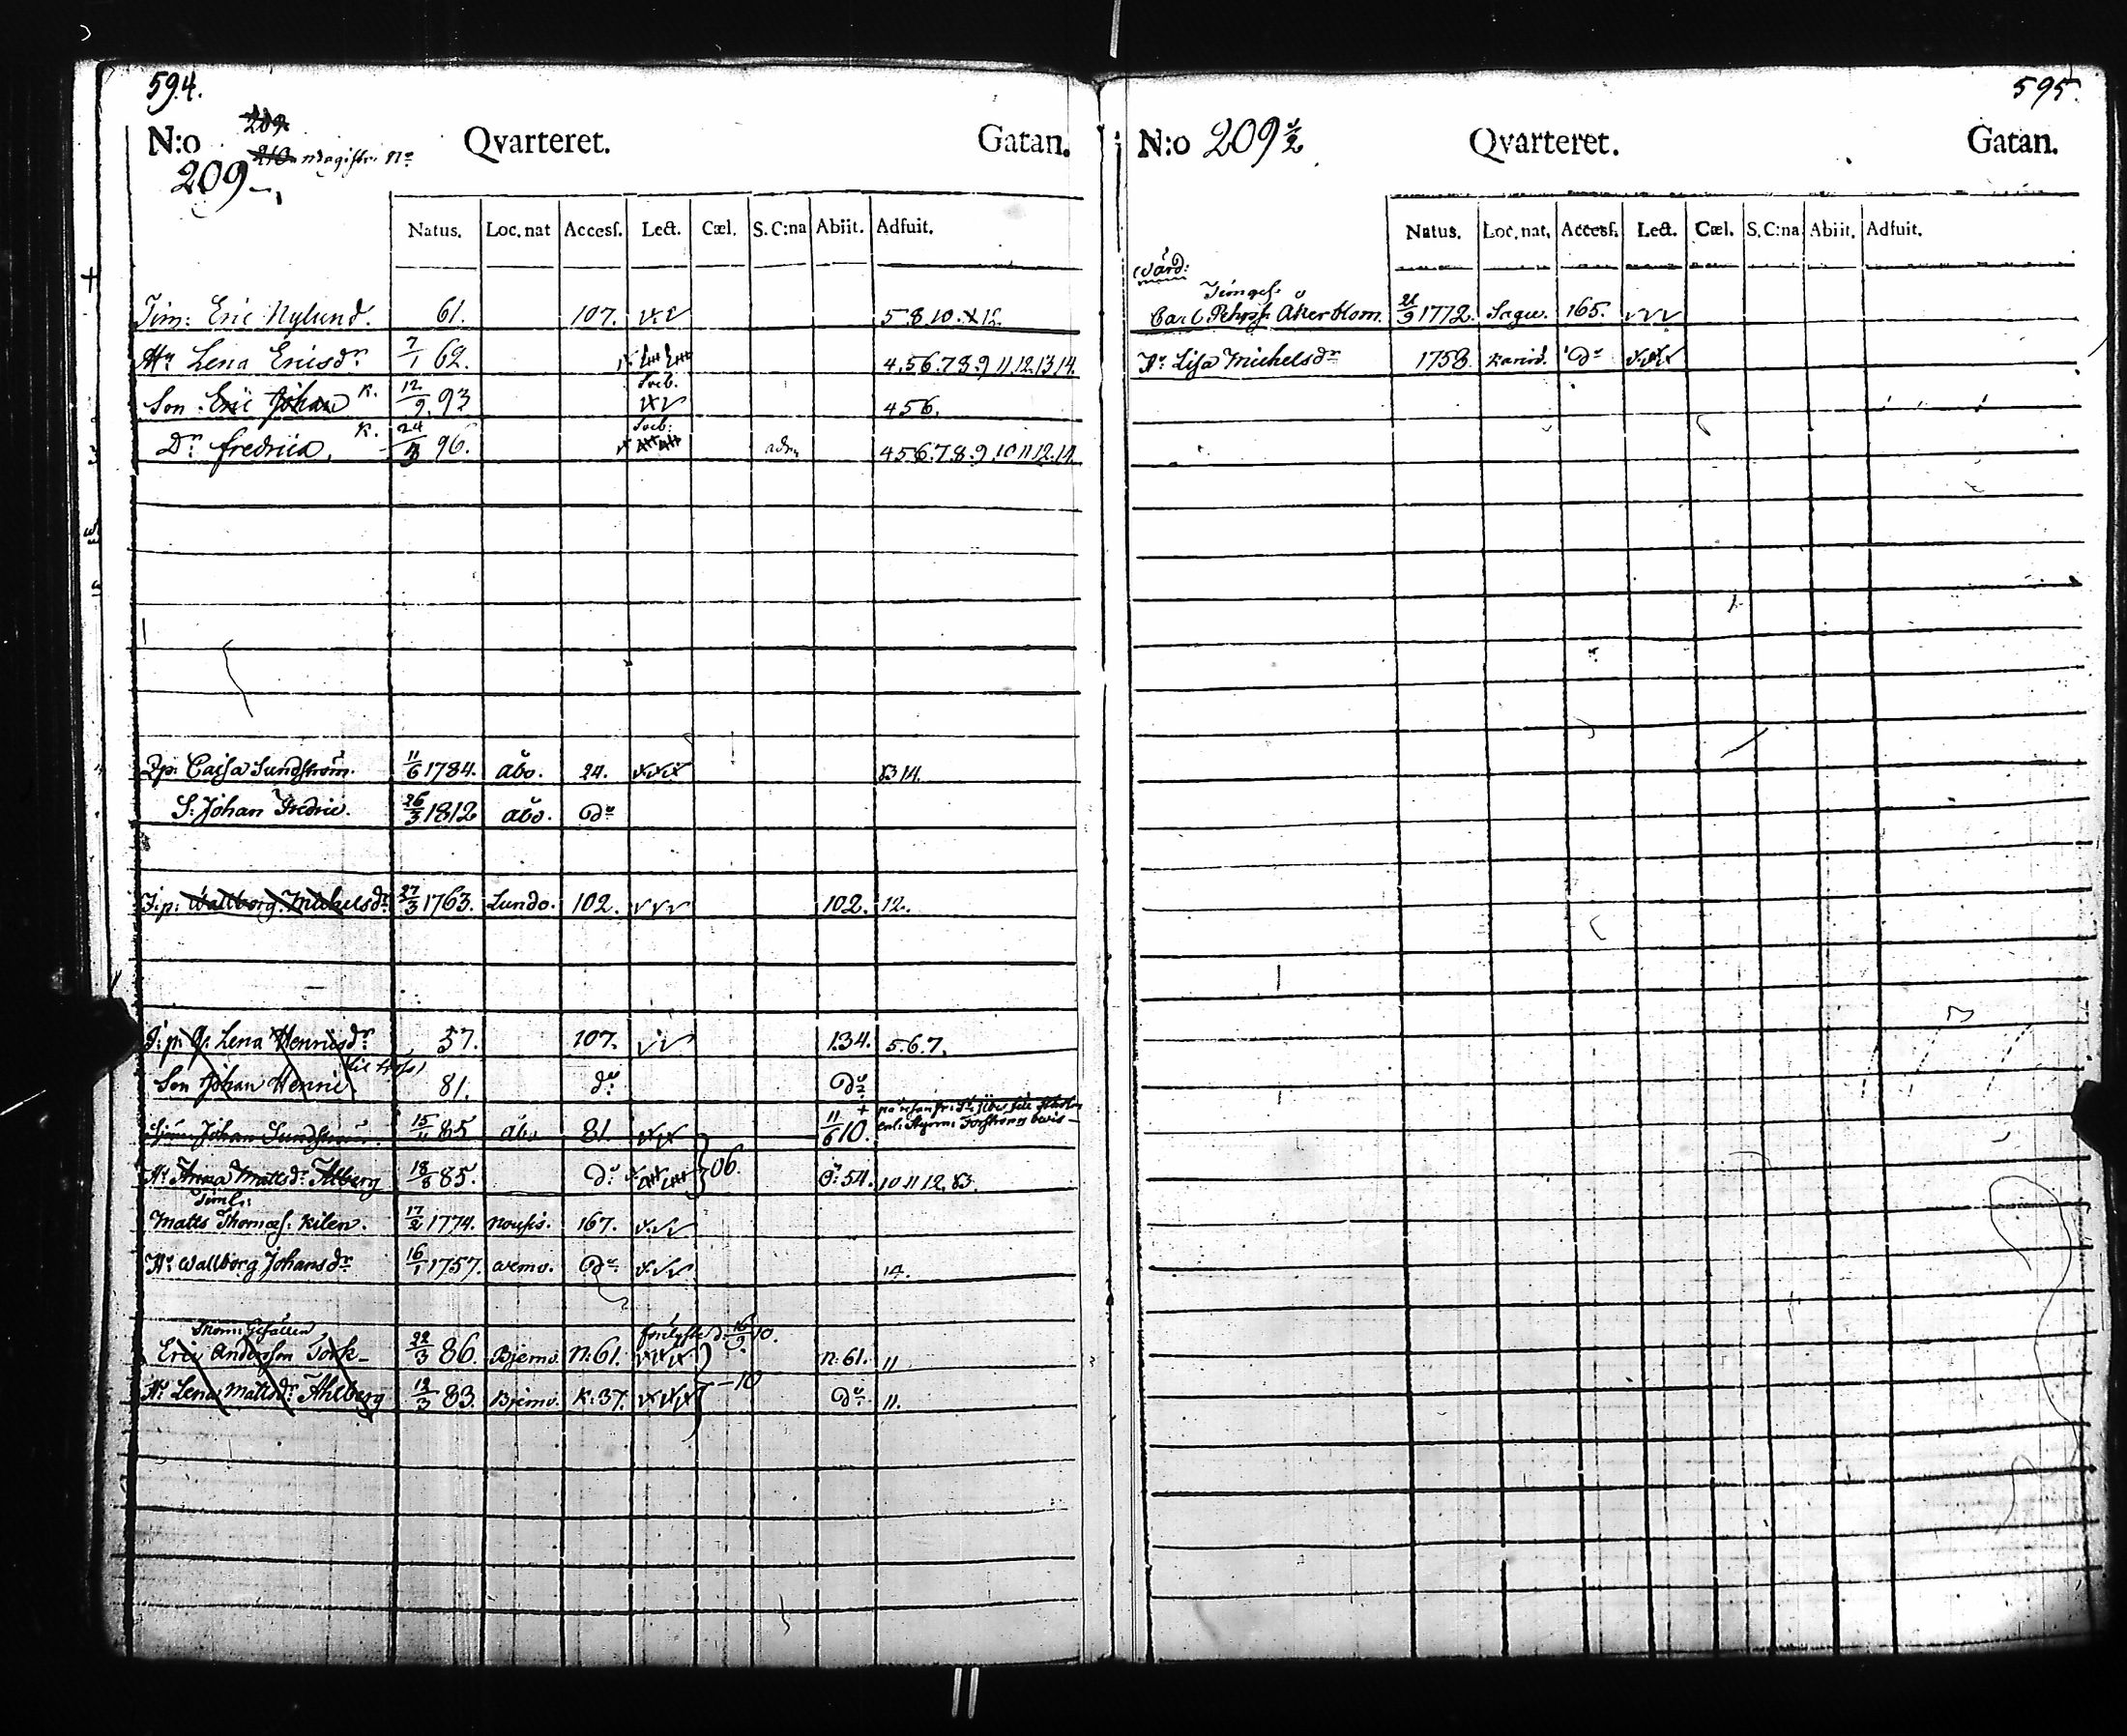 594.
N:o 209 Qvarteret. Gatan.
210 Magistr. No
209
Natus. Loc. nat Accesſ. Lect. Cæl. S. C:na Abiit. Adfuit.
Tim: Eric Nylund. 61. 107. 5 8 10. 12.
Hu Lena Ericsdr 7/1 62. 4. 5 6. 7 8. 9 11. 12. 13. 14.
Svib.
Son. Eric Johan K. 12/9. 93 4 5 6.
Svib:
Dr fredrica, K. 24/3 96. adm 4 5 6. 7. 8. 9 10 11 12. 14
Caisa Sundström. 11/6 1784. åbo. 24. 13 14.
S. Johan Fredric. 26/3 1812 åbo. do
I:p: Wallborg Michelsdr 27/3 1763. Lundo. 102. 102. 12.
I:p: Lena Henricsdr 57. 107. 134. 5. 6. 7.
Son Johan Henric 81. do do
Johan Sundström. 15/11 85 åbo 81. 11/6 10.
Hu Anna Mattsdr Ahlberg 18/8 85. do 06. 54. 10 11 12. 13.
Timk:
Matts Thomæs: Kilen. 17/2 1774. Nousis. 167.
Hu Wallborg Johansdr 16/1 1757. wemo. do 14.
Gesällen 16/9 10.
Eric Andersson Tork 22/3 86. Bjerno. N:61. N:61. 11
Hu Lena Mattsdr Ahlberg 12/3 83. Bjerno. K:37. -10 do 11.
595.
N:o 209 1/2 Qvarteret. Gatan.
Natus. Loc. nat, Accesſ. Lect. Cæl. S. C:na Abiit. Adfuit.
Wård:
Carl Pehrss: Åkerblom. 21/9 1772. Sagu. 165.
Hu Lisa Michelsdr 1758. do